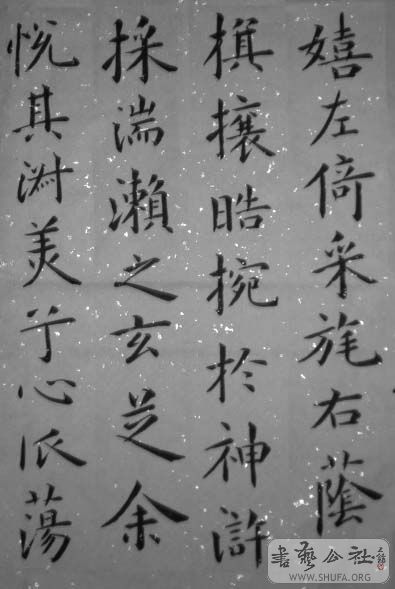 嬉左倚采旄右蔭
旗攘晧捥於神滸
採湍瀨之玄芝余
悅其淑美兮心蕩
書藝公社
WWW.SHUFA.ORG